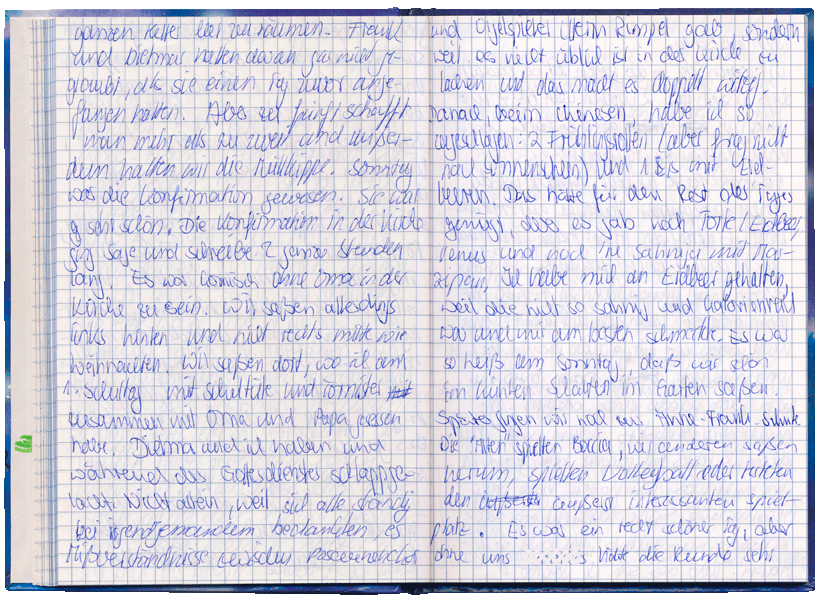 ganzen Keller leer zu räumen. Frank
und Dietmar hatten daran gar nicht ge-
glaubt, als sie einen Tag zuvor ange-
fangen hatten. Aber zu fünft schafft
man mehr als zu zweit und außer-
dem hatten wir die Müllkippe. Sonntag
was die Konfirmation gewesen. Sie war
sehr schön. Die Konfirmation in der Kirche
ging sage und schreibe 2 genau Stunden
lang. Es war komisch ohne Oma in der
Kirche zu sein. Wir saßen allerdings
links hinten und nicht rechts mitte wie
Weihnachten. Wir saßen dort, wo ich am
1. Schultag mit Schultüte und Tornister
zusammen mit Oma und Papa gesessen
habe. Dietmar und ich haben uns
während des Gottesdienstes schlappge-
lacht. Nicht allein, weil sich alle ständig
bei irgendjemandem bedankten, es
Mißverständnisse zwischen Posaunenchor
und Orgelspieler beim Rumpel gab, sondern
weil es nicht üblich ist in der Kirche zu
lachen und das macht es doppelt witzig.
Danach, beim Chinesen, habe ich so
zugeschlagen: 2 Frühlingsrollen (aber frag nicht
nach Sonnenschein) und 1 Eis mit Erd-
beeren. Das hätte für den Rest des Tages
genügt, aber es gab noch Torte (Erdbeer,
und noch 'ne sahnige mit Mar-
zipan, Ich habe mich an Erdbeer gehalten,
weil die nicht so sahnig und kalorienreich
war und mir am besten schmeckte. Es war
so heiß am Sonntag, daß wir schön
im kühlen Schatten im Garten saßen.
Später gingen wir noch zur Anne-Frank-Schule.
Die "Alten" spielten Boccia, wir anderen saßen
herum, spielten Volleyball oder testeten
den äußerst interessanten Spiel-
platz. Es war ein recht schöner Tag, aber
ohne uns die Runde sehr